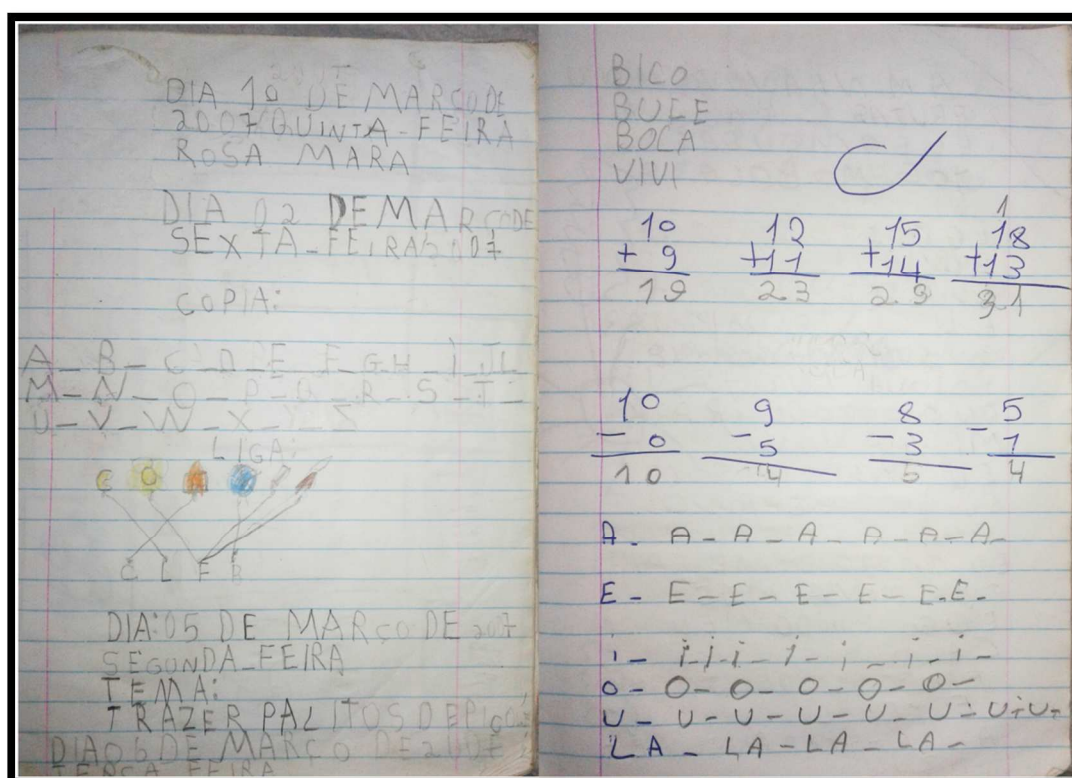 DIA 10 DE MARÇO DE
2007 QUINTA-FEIRA
ROSA MARA
DIA 02 DE MARÇO DE
SEXTA-FEIRA
COPIA:
A_B_C_D_E_F_G_H_I_J_L
M_N_O_P_Q_R_S_T_
U_V_W_X_Y_Z
LIGA:
C L F B
DIA:05 DE MARÇO DE 2007
SEGUNDA_FEIRA
TEMA:
TRAZER PALITOS DE
DIA 06 DE MARÇO DE
TERÇA FEIRA
BICO
BULE
BOCA
VIVI
1
10 12 15 18
+ 9 +11 +14 +13
19 23 29 31
10 9 8 5
- 0 - 5 - 3 - 1
10 4 5 4
A - A - A - A - A - A - A -
E - E - E - E - E - E - E -
i - i - i - i - i - i - i - i -
O - O - O - O - O - O -
U - U - U - U - U - U - U - U -
LA - LA - LA - LA -